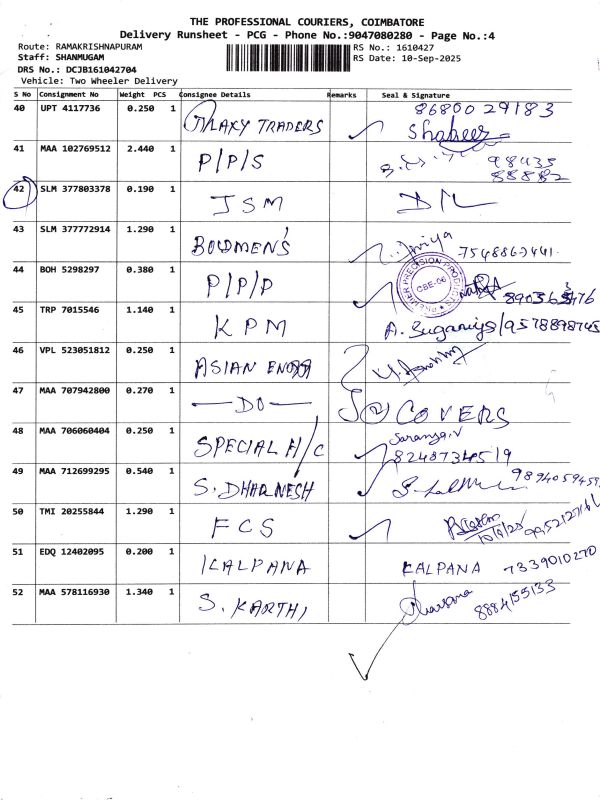 THE PROFESSIONAL COURIERS, COIMBATORE
Delivery Runsheet - PCG - Phone No.:9047080280 - Page No.:4
Route: RAMAKRISHNAPURAM RS No.: 1610427
Staff: SHANMUGAM RS Date: 10-Sep-2025
DRS No.: DCJB161042704
Vehicle: Two Wheeler Delivery
S No Consignment No Weight PCS Consignee Details Remarks Seal & Signature
40 UPT 4117736 0.250 1 TRADERS 8680029183
Shabeer
41 MAA 102769512 2.440 1 P/P/S 98435
88882
42 SLM 377803378 0.190 1 JSM D/L
43 SLM 377772914 1.290 1 BOWMEN'S
44 BOH 5298297 0.380 1 P/P/P PREMIER PRECISION PRODUCTS CBE-06
45 TRP 7015546 1.140 1 KPM A. Suganiya/9578898745
46 VPL 523051812 0.250 1 ASIAN
47 MAA 707942800 0.270 1 — DO — (2) COVERS
48 MAA 706060404 0.250 1 SPECIAL H/C Saranya.V
49 MAA 712699295 0.540 1 S. DHARNESH
50 TMI 20255844 1.290 1 FCS 10/9/25
51 EDQ 12402095 0.200 1 KALPANA KALPANA 7339010270
52 MAA 578116930 1.340 1 S. KARTHI 8884155133